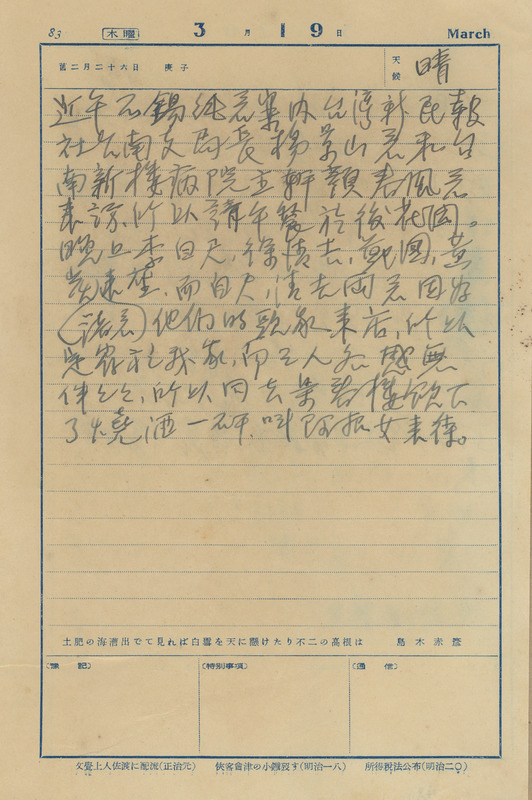 83 木曜 3月19日 March
舊二月二十六日 庚子 天候 晴
近午石錫純君案內台灣新民報
社台南支局長楊景山君和台
南新樓病院主幹顏春風君
來訪,所以請午餐於後花園。
晚旦李自尺,徐清去,
來坐,而自尺,清去両君因好
(諸君)他們的頭家来店,所以
家於我家,
伴,所以同去樓飲下
了燒酒一杯,叫阿振女来待。
土肥の海漕出でて見れば白雪を天に懸けたり不二の高根は 島木赤彥
〔豫記〕 〔特別事項〕 〔通信〕
文覺上人佐渡に配流(正治元) 俠客會津の小鐵歿す(明治一八) 所得稅法公布(明治二〇)